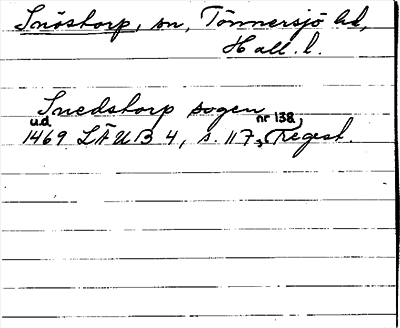 Snöstorp, sn, Tönnersjö hd,
Hall. l.
Snedstorp sogen
u.d. nr 138,
1469 LÄUB 4, s. 117, Regest.